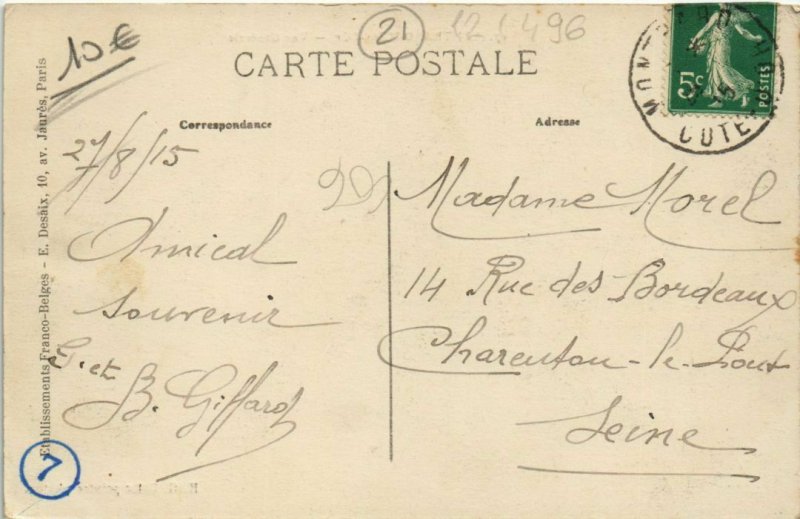 10€
21
CARTE POSTALE
5c
POSTES
Correspondance
Adresse
27/8/15
Amical
souvenir
G. et
B. Giffard
Madame Morel
14 Rue des Bordeaux
Charenton-le-Pont
Seine
7
Etablissements Franco-Belges - E. Desaix, 10, av. Jaurès, Paris